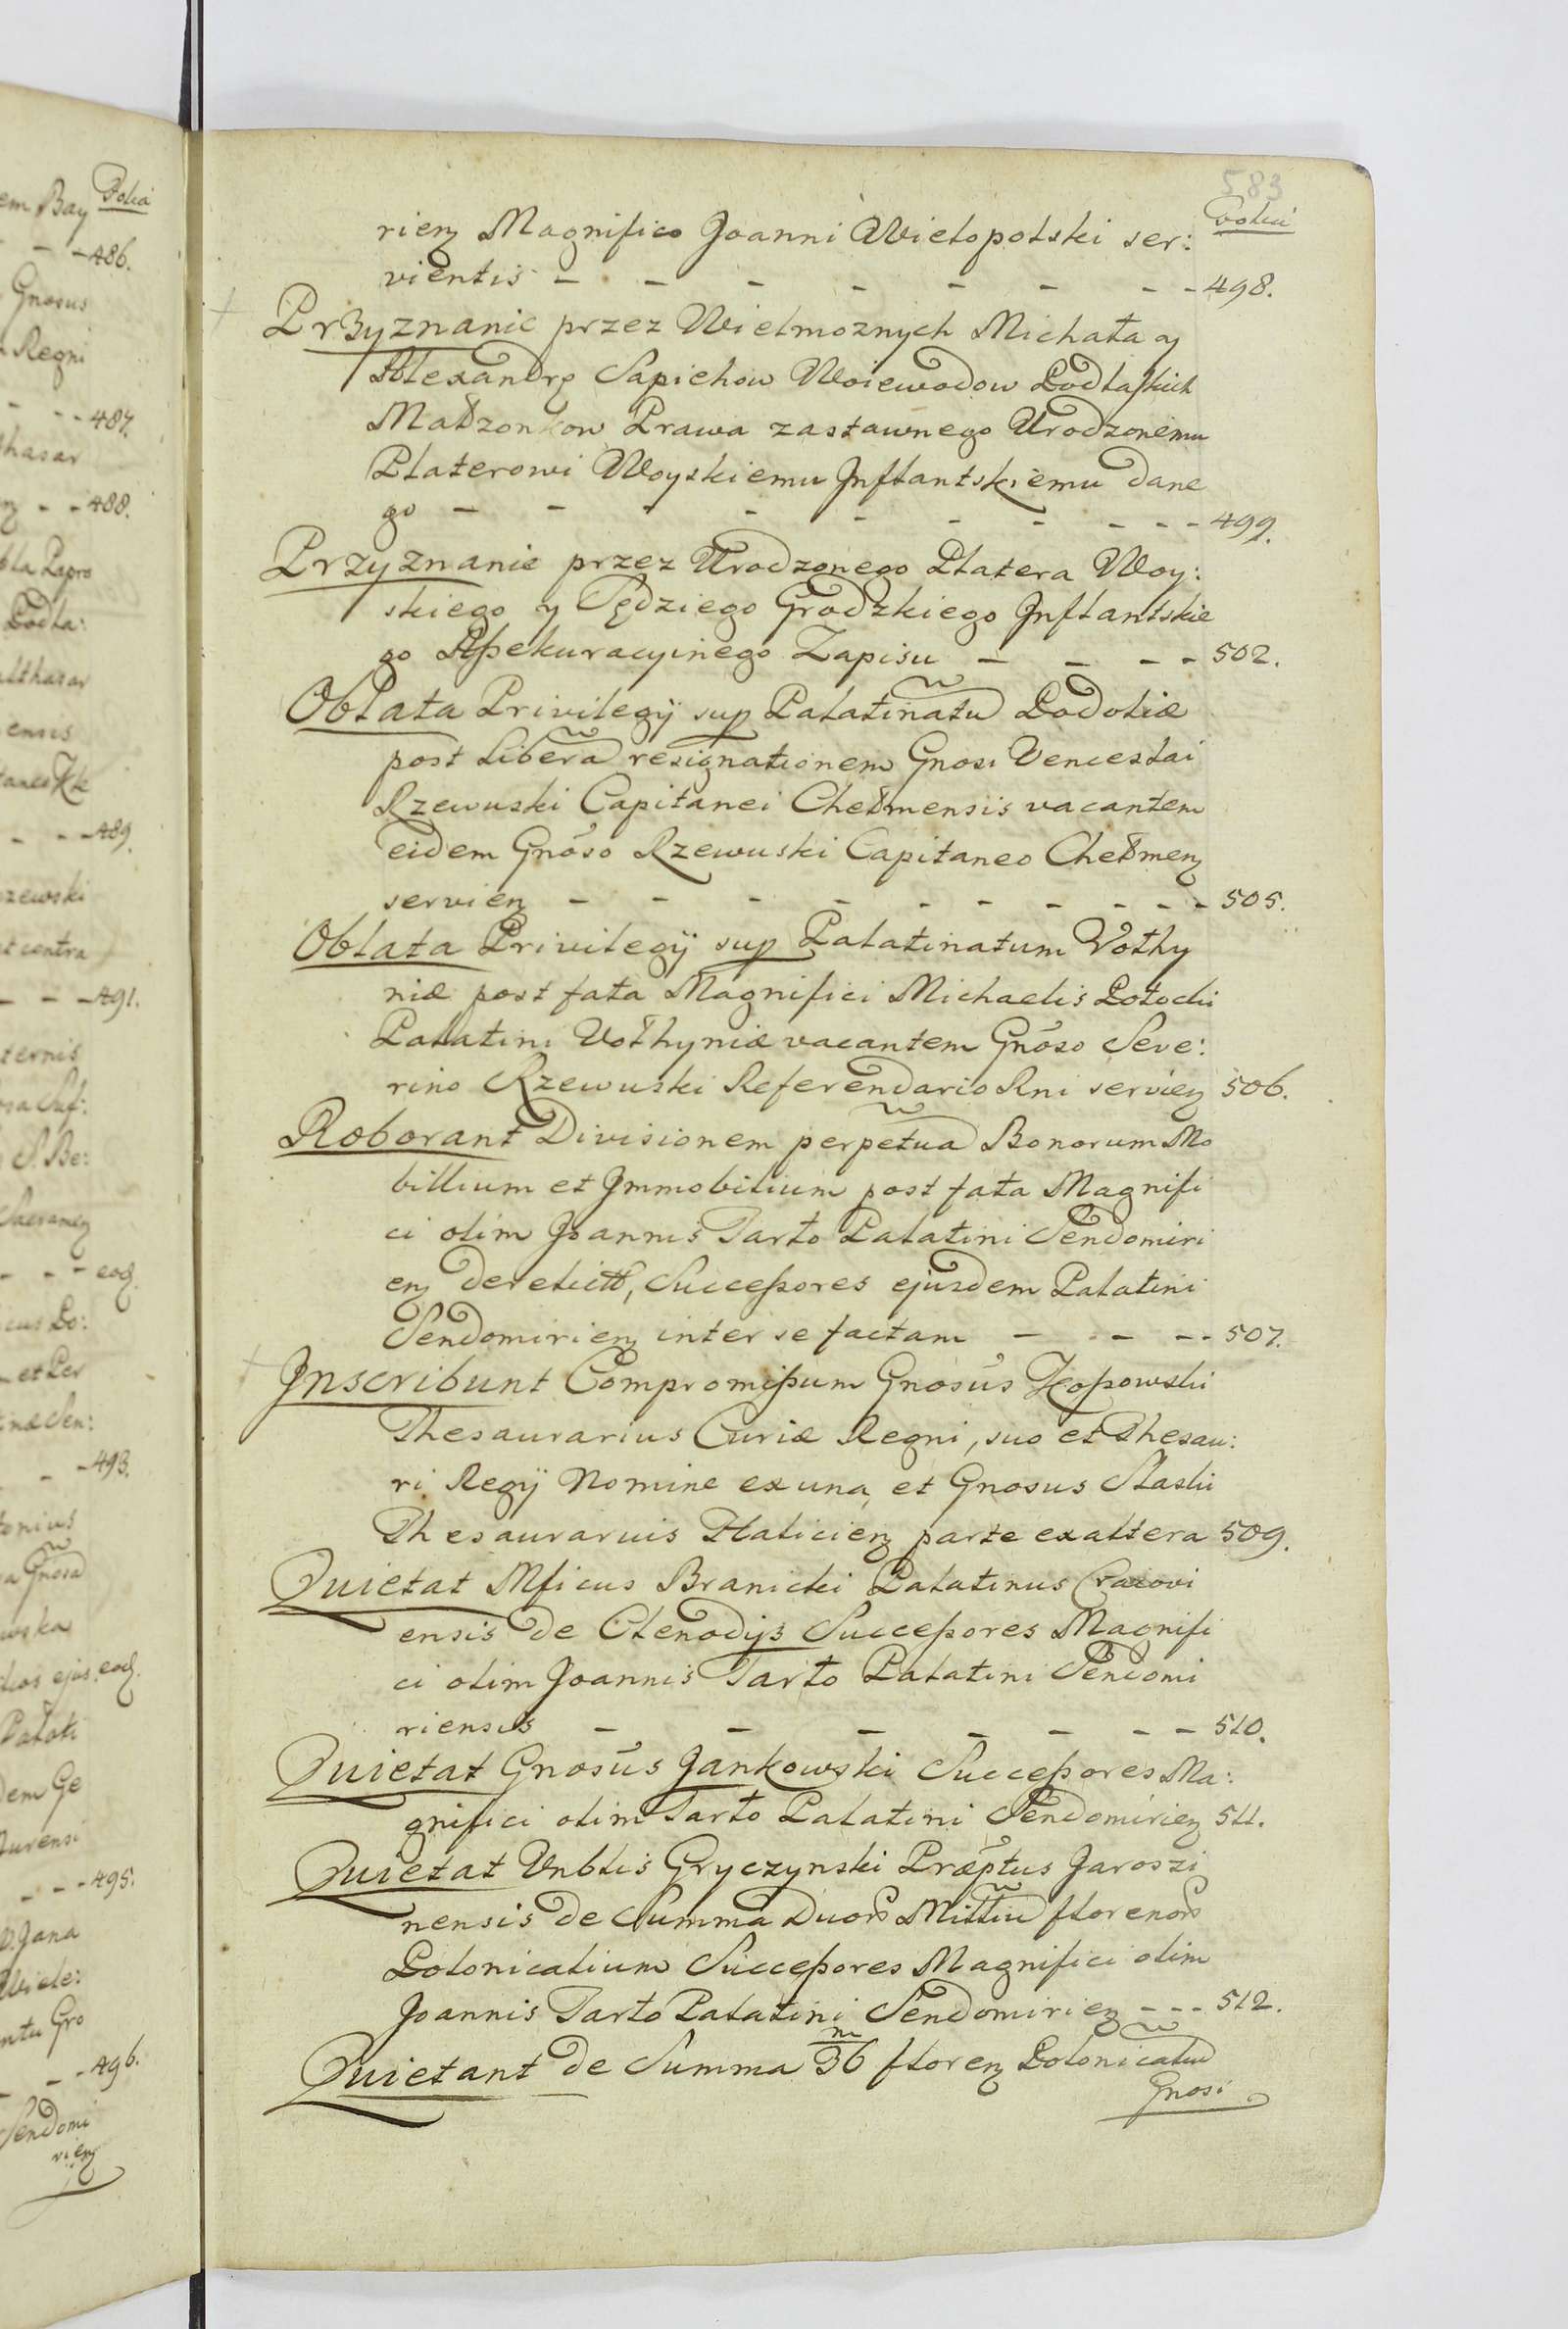 583
Folia
rien Magnifico Joanni Wielopolski ser:
vientis - - - - - - - - 498.
Przyznanie przez Wielmoznych Michała y
Alexandrę Sapiehow Woiewodow Podlaskich
Małzonkow Prawa zastawnego Urodzonemu
Platerowi Woyskiemu Inflantskiemu dane
go - - - - - - - - - - 499.
Przyznanie przez Urodzonego Platera Woy:
skiego y Sędziego Grodzkiego Inflantskie
go Assekuracyinego Zapisu - - - - 502.
Oblata Privilegij sup Palatinatũ Podoliæ
post liberã resignationem Gnosi Venceslai
Rzewuski Capitanei Chełmensis vacantem
eidem Gnõso Rzewuski Capitaneo Chełmen
servien - - - - - - - - - - 505.
Oblata Privilegij sup Palatinatum Volhy
niæ post fata Magnifici Michaelis Potocki
Palatini Volhyniæ vacantem Gnõso Seve:
rino Rzewuski Referendario Rni servien 506.
Roborant Divisionem perpetuã Bonorum Mo
billium et Immobilium post fata Magnifi
ci olim Joannis Tarło Palatini Sendomiri
en derelict, Successores ejusdem Palatini
Sendomirien inter se factam - - - - 507.
Inscribunt Compromissum Gnosũs Kossowski
Thesaurarius Curiæ Regni, suo et Thesau:
ri Regij Nomine ex una, et Gnosus Slaski
Thesaurarius Halicien parte ex altera 509.
Quietat Mficus Branicki Palatinus Cracovi
ensis de Clenodijs Successores Magnifi
ci olim Joannis Tarło Palatini Sendomi
riensis - - - - - - - 510.
Quietat Gnosũs Jankowski Successores Ma:
gnifici olim Tarło Palatini Sendomirien 511.
Quietat Vnblis Gryczynski Præptus Jaroszi
nensis de Summa Duor Milliũ florenor
Polonicalium Successores Magnifici olim
Joannis Tarło Palatini Sendomirien - - - 512.
Quietant de Summa 36 floren Polonicaliũ
Gnosi